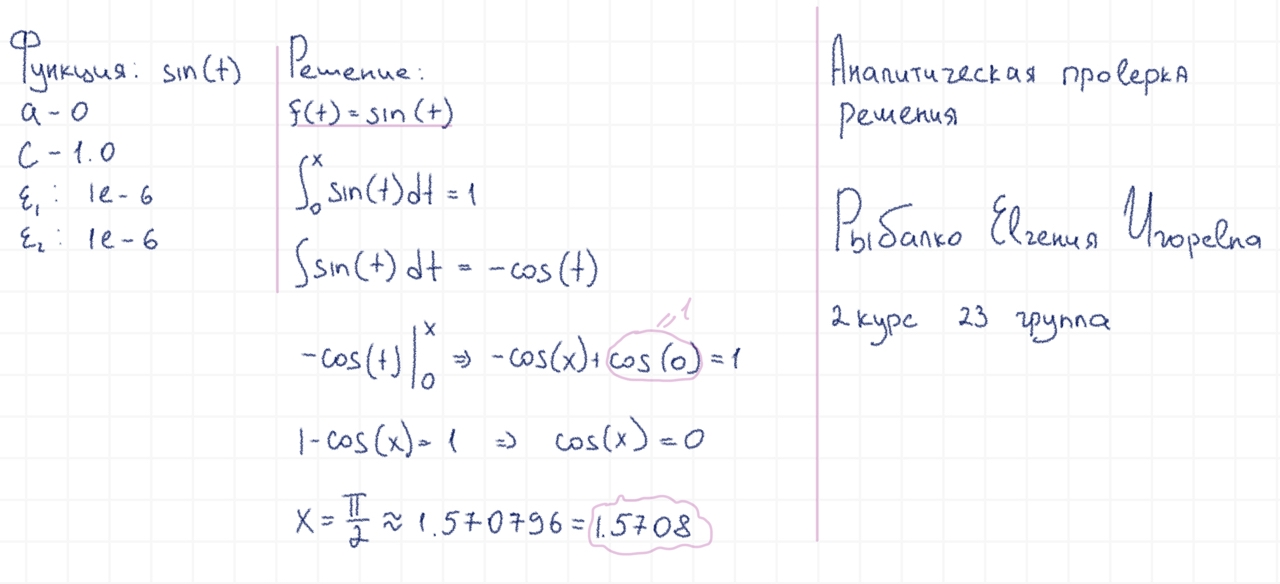 Функция: sin(t)
a - 0
C - 1.0
ε₁: 1e-6
ε₂: 1e-6
Решение:
f(t) = sin(t)
∫₀ˣ sin(t)dt = 1
∫sin(t) dt = -cos(t)
-cos(t)|₀ˣ ⇒ -cos(x) + cos(0) = 1
=1
1-cos(x) = 1 ⇒ cos(x) = 0
X = π/2 ≈ 1.570796 = 1.5708
Аналитическая проверка
решения
Рыбалко Евгения Игоревна
2 курс 23 группа